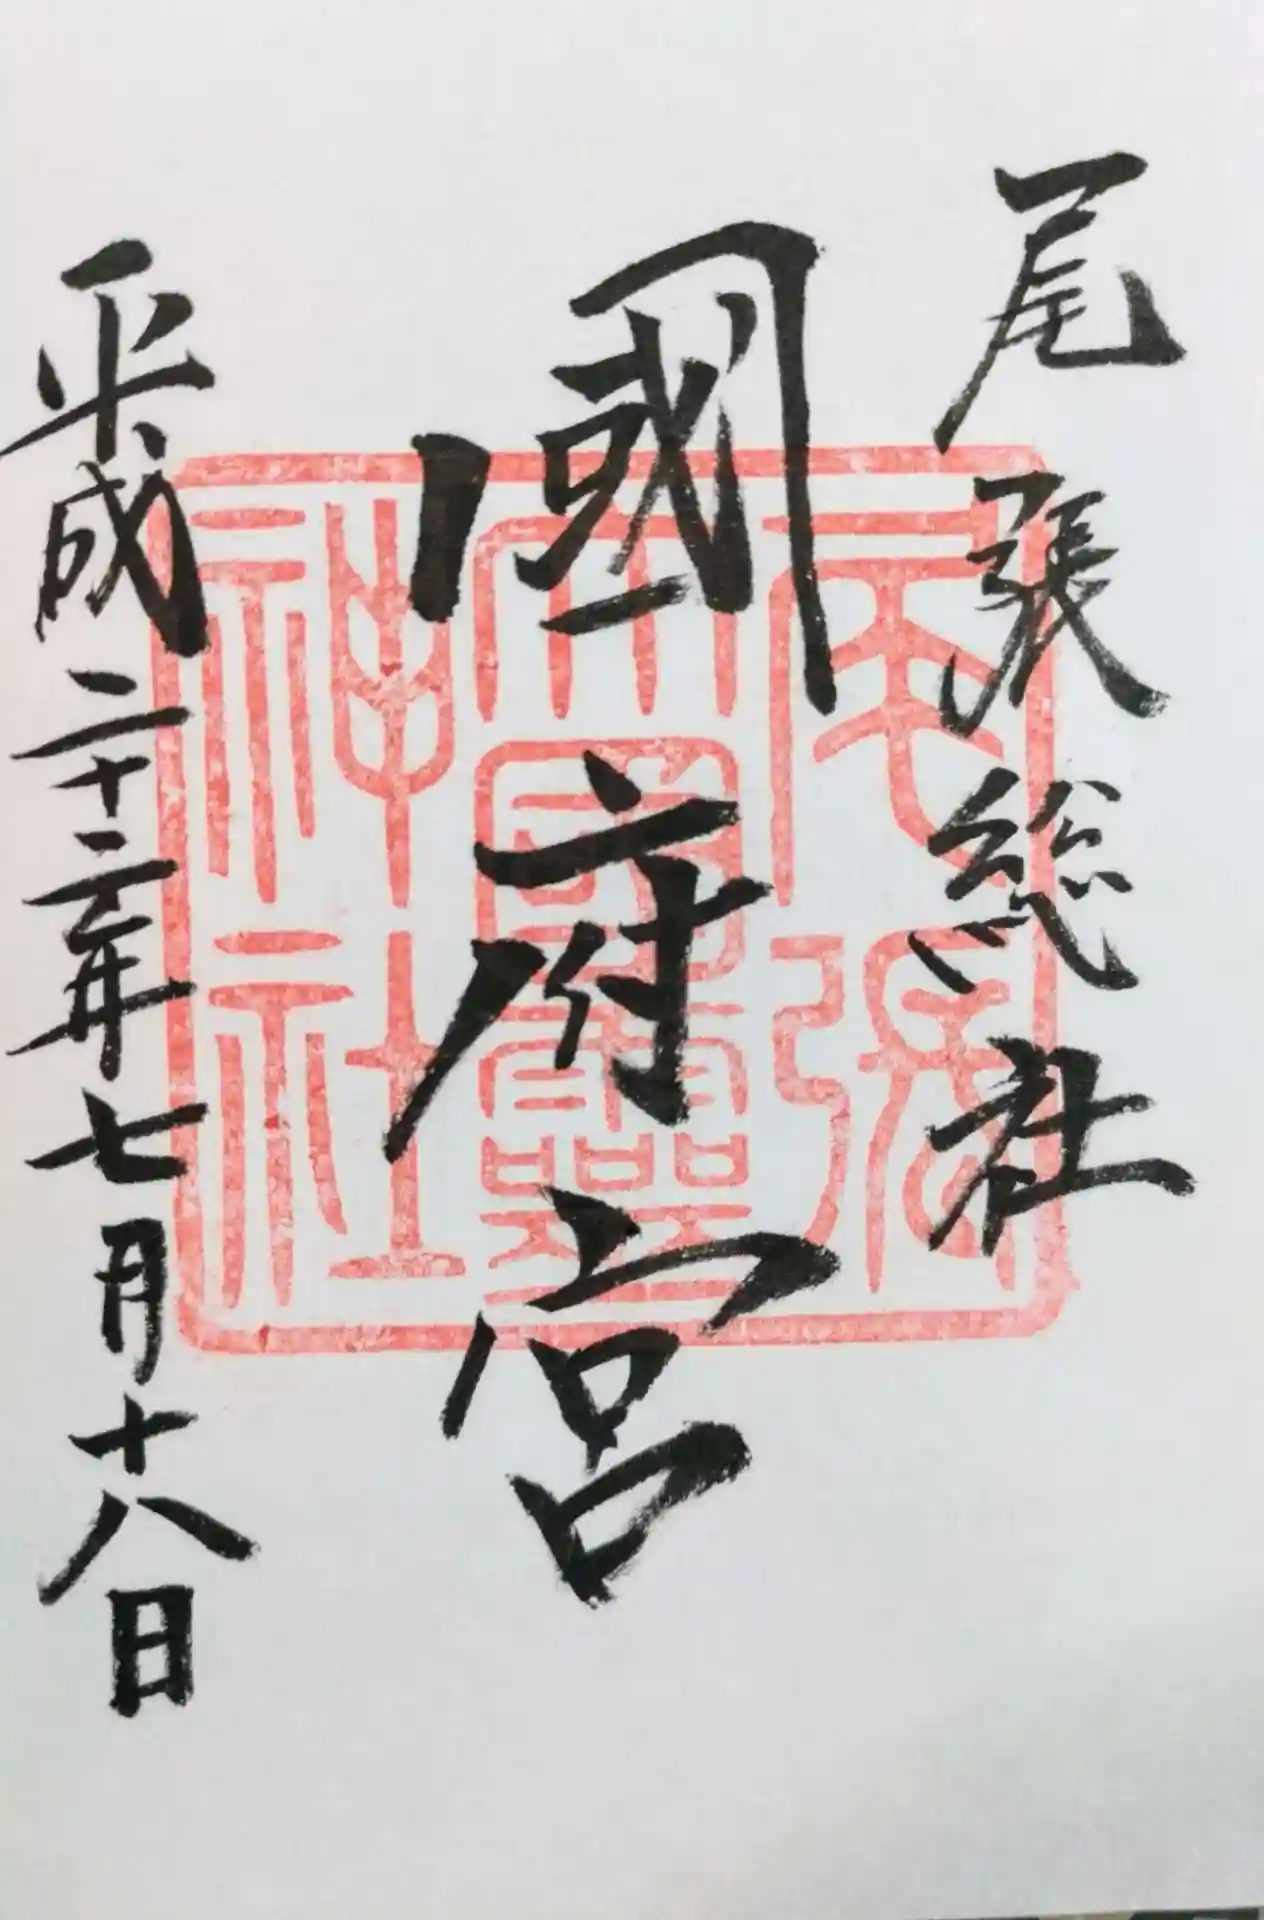 尾張総社
國府宮
平成二十二年七月十八日
尾張
大國霊
神社